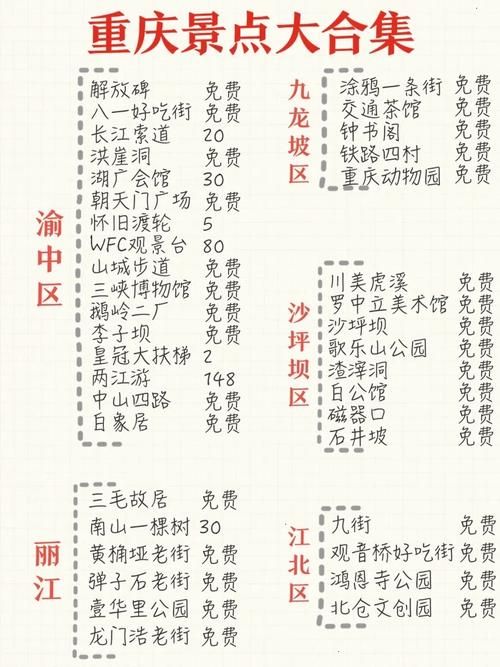 重庆景点大合集
渝中区
解放碑 免费
八一好吃街 免费
长江索道 20
洪崖洞 免费
湖广会馆 30
朝天门广场 免费
怀旧渡轮 5
WFC观景台 80
山城步道 免费
三峡博物馆 免费
鹅岭二厂 免费
李子坝 免费
皇冠大扶梯 2
两江游 148
中山四路 免费
白象居 免费
九龙坡区
涂鸦一条街 免费
交通茶馆 免费
钟书阁 免费
铁路四村 免费
重庆动物园 免费
沙坪坝区
川美虎溪 免费
罗中立美术馆 免费
沙坪坝 免费
歌乐山公园 免费
渣滓洞 免费
白公馆 免费
磁器口 免费
石井坡 免费
丽江
三毛故居 免费
南山一棵树 30
黄桷垭老街 免费
弹子石老街 免费
壹华里公园 免费
龙门浩老街 免费
江北区
九街 免费
观音桥好吃街 免费
鸿恩寺公园 免费
北仓文创园 免费